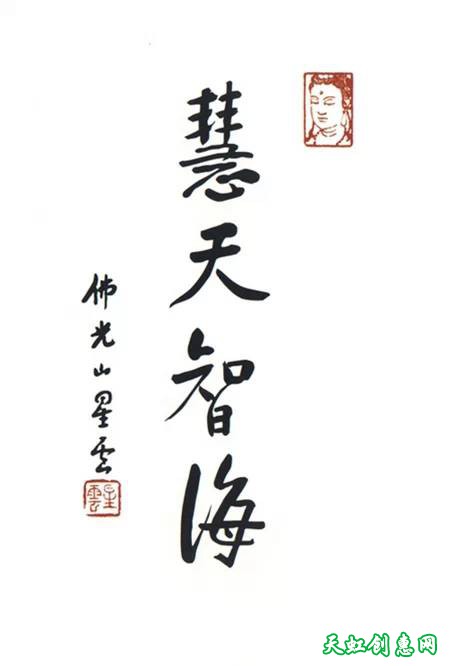 慧天智海
佛光山星雲
星雲
天虹创意网